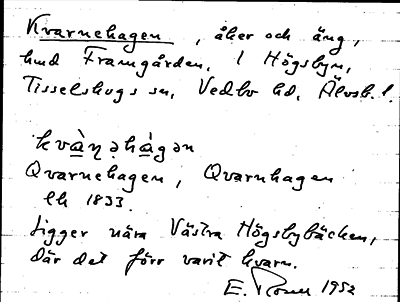 Kvarnehagen, åker och äng,
hmd Framgården, i Högsbyn,
Tisselskogs sn, Vedbo hd, Älvsb. l.
kvàṇəhàgən
Qvarnehagen, Qvarnhagen
lh 1833.
Ligger nära Västra Högsbybäcken,
där det förr varit kvarn.
E. 1952